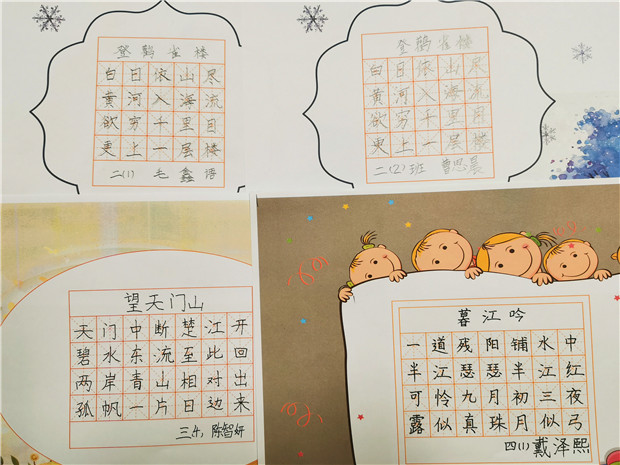 登鹳雀楼
白日依山尽
黄河入海流
欲穷千里目
更上一层楼
二(1) 毛鑫
登鹳雀楼
白日依山尽
黄河入海流
欲穷千里目
更上一层楼
二(2)班 曹思晨
望天门山
天门中断楚江开
碧水东流至此回
两岸青山相对出
孤帆一片日边来
陈智妍
暮江吟
一道残阳铺水中
半江瑟瑟半江红
可怜九月初三夜
露似真珠月似弓
四(1)戴泽熙